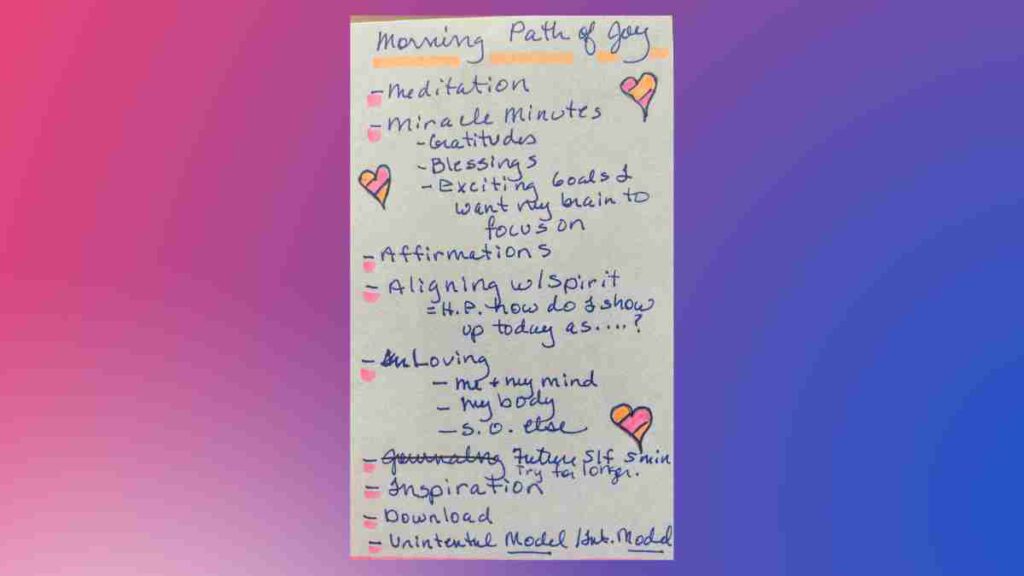 Morning Path of Joy
- Meditation
- Miracle Minutes
- Gratitudes
- Blessings
- Exciting Goals I
want my brain to
focus on
- Affirmations
- Aligning w/Spirit
= H.P. how do I show
up today as....?
- Loving
- me + my mind
- my body
- S.O. else
- Journalng Future Slf 5 min
Try for longer.
- Inspiration
- Download
- Unintentul Model / Int. Model